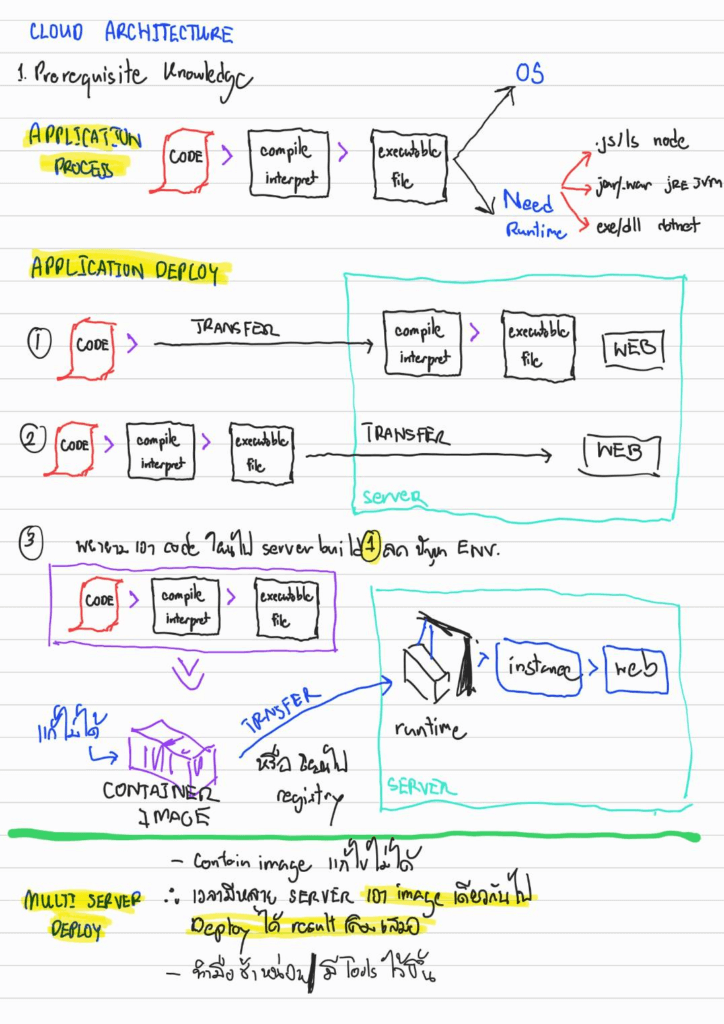 CLOUD ARCHITECTURE
1. Prerequisite Knowledge
OS
APPLICATION
PROCESS
CODE > compile interpret > executable file
.js/ls node
jar/.war JRE JVM
exe/dll dotnet
Need
Runtime
APPLICATION DEPLOY
① CODE > TRANSFER compile interpret > executable file WEB
② CODE > compile interpret > executable file TRANSFER WEB
Server
③ พยายาม เอา code โยนไป server build 1 ลด ปัญหา ENV.
CODE > compile interpret > executable file
runtime > instance > web
แก้ไม่ได้
TRANSFER
CONTAINER
IMAGE
หรือ โยนไป
registry
SERVER
- Contain image แก้ไขไม่ได้
MULTI SERVER
DEPLOY
∴ เวลามีหลาย SERVER เอา image เดียวกันไป
Deploy ได้ result เดิมเสมอ
- ทำมือช้าหน่อย / มี Tools ไวขึ้น